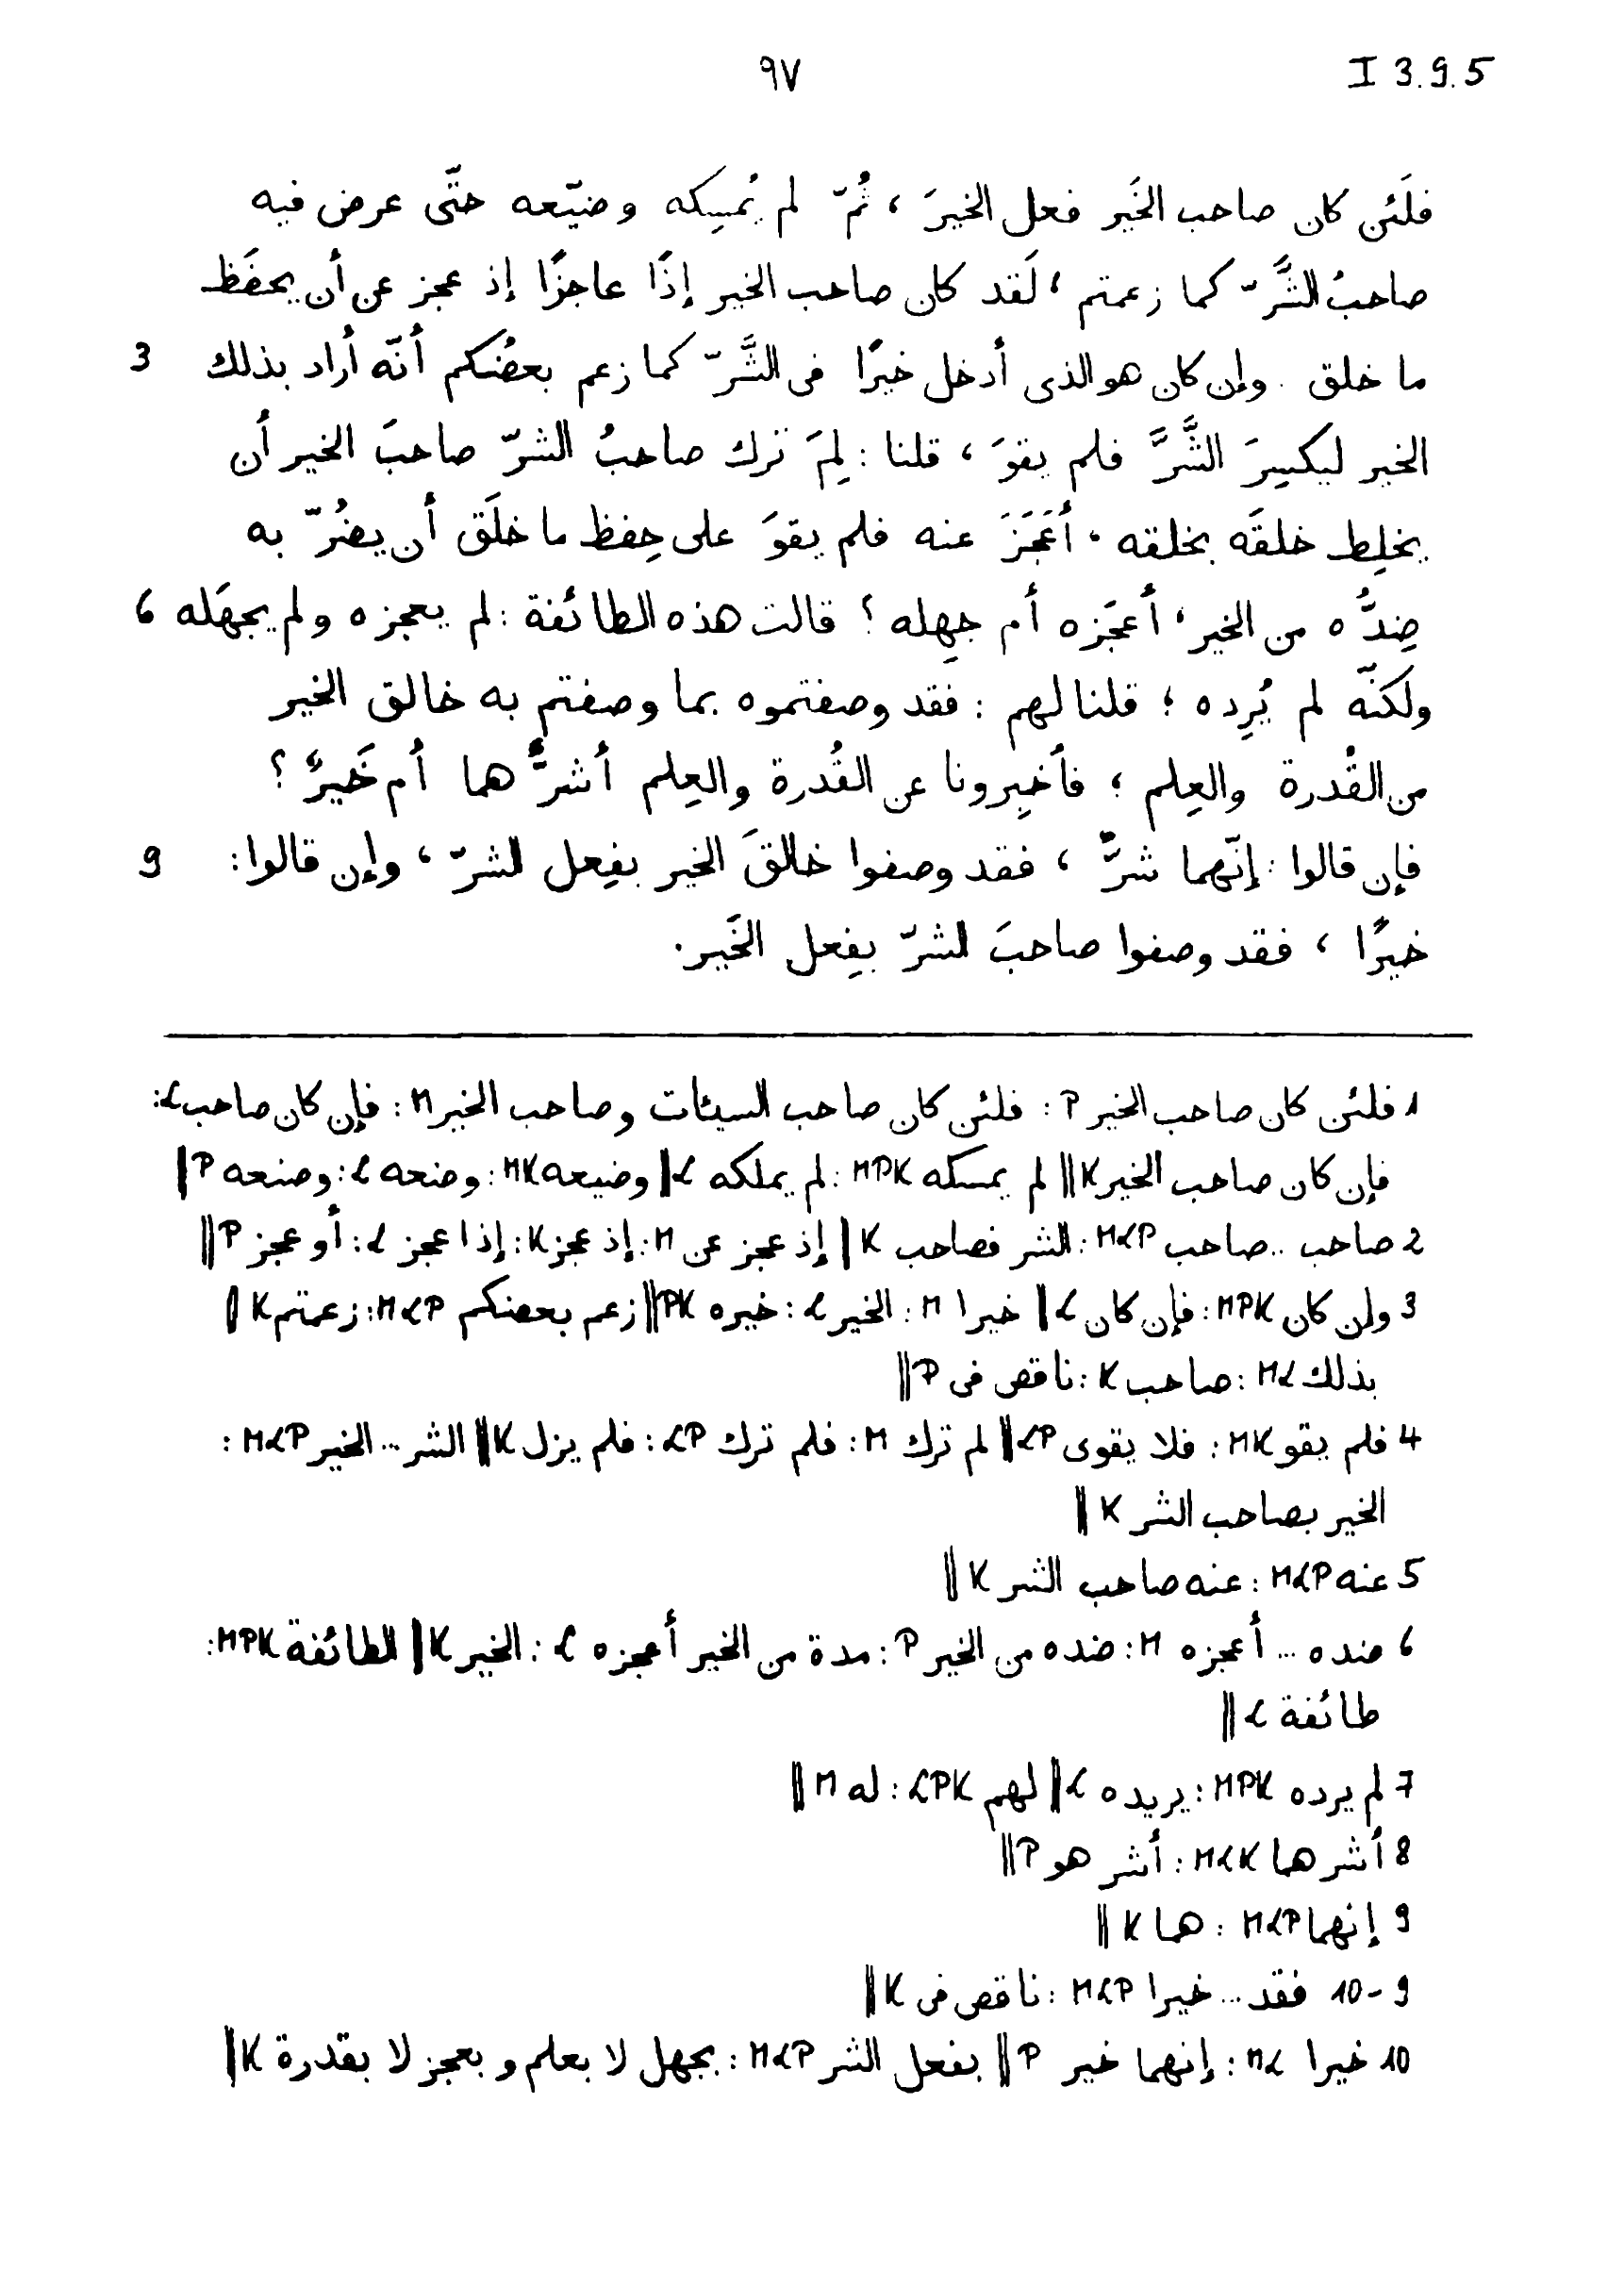 I 3.9.5 ٩٧
فلَئن كان صاحب الخَير فعل الخيرَ ، ثُمّ لم يُمسِكه وضيّعه حتّى عرض فيه
صاحبُ الشَّرّ كما زعمتم ، لَقد كان صاحب الخير إذًا عاجزًا إذ عجز عن أن يحفَظ
ما خلق . وإن كان هو الذى أدخل خيرًا فى الشَّرّ كما زعم بعضُكم أنّه أراد بذلك 3
الخير ليكسِرَ الشَّرَّ فلم يقوَ ، قلنا : لِمَ ترك صاحبُ الشرّ صاحبَ الخير أن
يخلِط خلقَه بخلقه ، أعَجَزَ عنه فلم يقوَ على حِفظ ما خلَق أن يضُرّ به
ضِدُّه من الخير ، أعجَزه أم جهِله ؟ قالت هذه الطائفة : لم يعجزه ولم يجهَله 6
ولكنّه لم يُرِده ؛ قلنا لهم : فقد وصفتموه بما وصفتم به خالق الخير
من القُدرة والعِلم ؛ فأخبِرونا عن القُدرة والعِلم أشرٌّ هما أم خَيرٌ ؟
فإن قالوا : إنّهما شرٌّ ، فقد وصفوا خالقَ الخير بفِعل الشرّ ، وإن قالوا : 9
خيرًا ، فقد وصفوا صاحبَ الشرّ بفِعل الخَير .
1 فلئن كان صاحب الخير P : فلئن كان صاحب السيئات وصاحب الخير M : فإن كان صاحب L :
فإن كان صاحب الخير K || لم يمسكه MPK : لم يملكه L || وضيعه MK : وضعه L : وصنعه P ||
2 صاحب .. صاحب MLP : الشر فصاحب K || إذ عجز عن M : إذ عجز K : إذا عجز L : أو عجز P ||
3 وإن كان MPK : فإن كان L || خيرا M : الخير L : خيره PK || زعم بعضكم MLP : زعمتم K ||
بذلك ML : صاحب K : ناقص فى P ||
4 فلم يقو MK : فلا يقوى LP || لم ترك M : فلم ترك LP : فلم يزل K || الشر ... الخير MLP :
الخير بصاحب الشر K ||
5 عنه MLP : عنه صاحب الشر K ||
6 ضده ... أعجزه M : ضده من الخير P : مدة من الخير أعجزه L : الخير K || الطائفة MPK :
طائفة L ||
7 لم يرده MPK : يريده L || لهم LPK : له M ||
8 أشر هما MLK : أشر هو P ||
9 إنهما MLP : هما K ||
9-10 فقد ... خيرا MLP : ناقص فى K ||
10 خيرا ML : إنهما خير P || بفعل الشر MLP : بجهل لا بعلم وبعجز لا بقدرة K ||